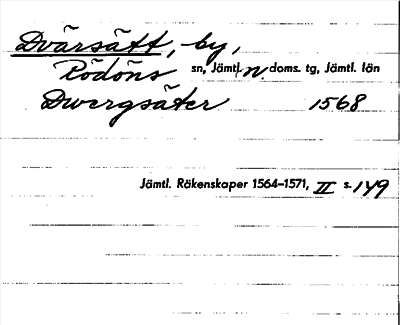 Dvärsätt, by,
Rödöns sn, Jämtl. n. doms. tg, Jämtl. län
Dwergsäter 1568
Jämtl. Räkenskaper 1564-1571, II s. 149